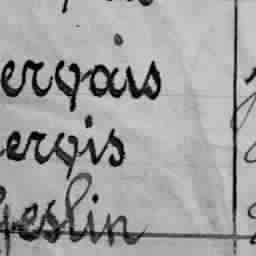 ervais
ervis
Geslin